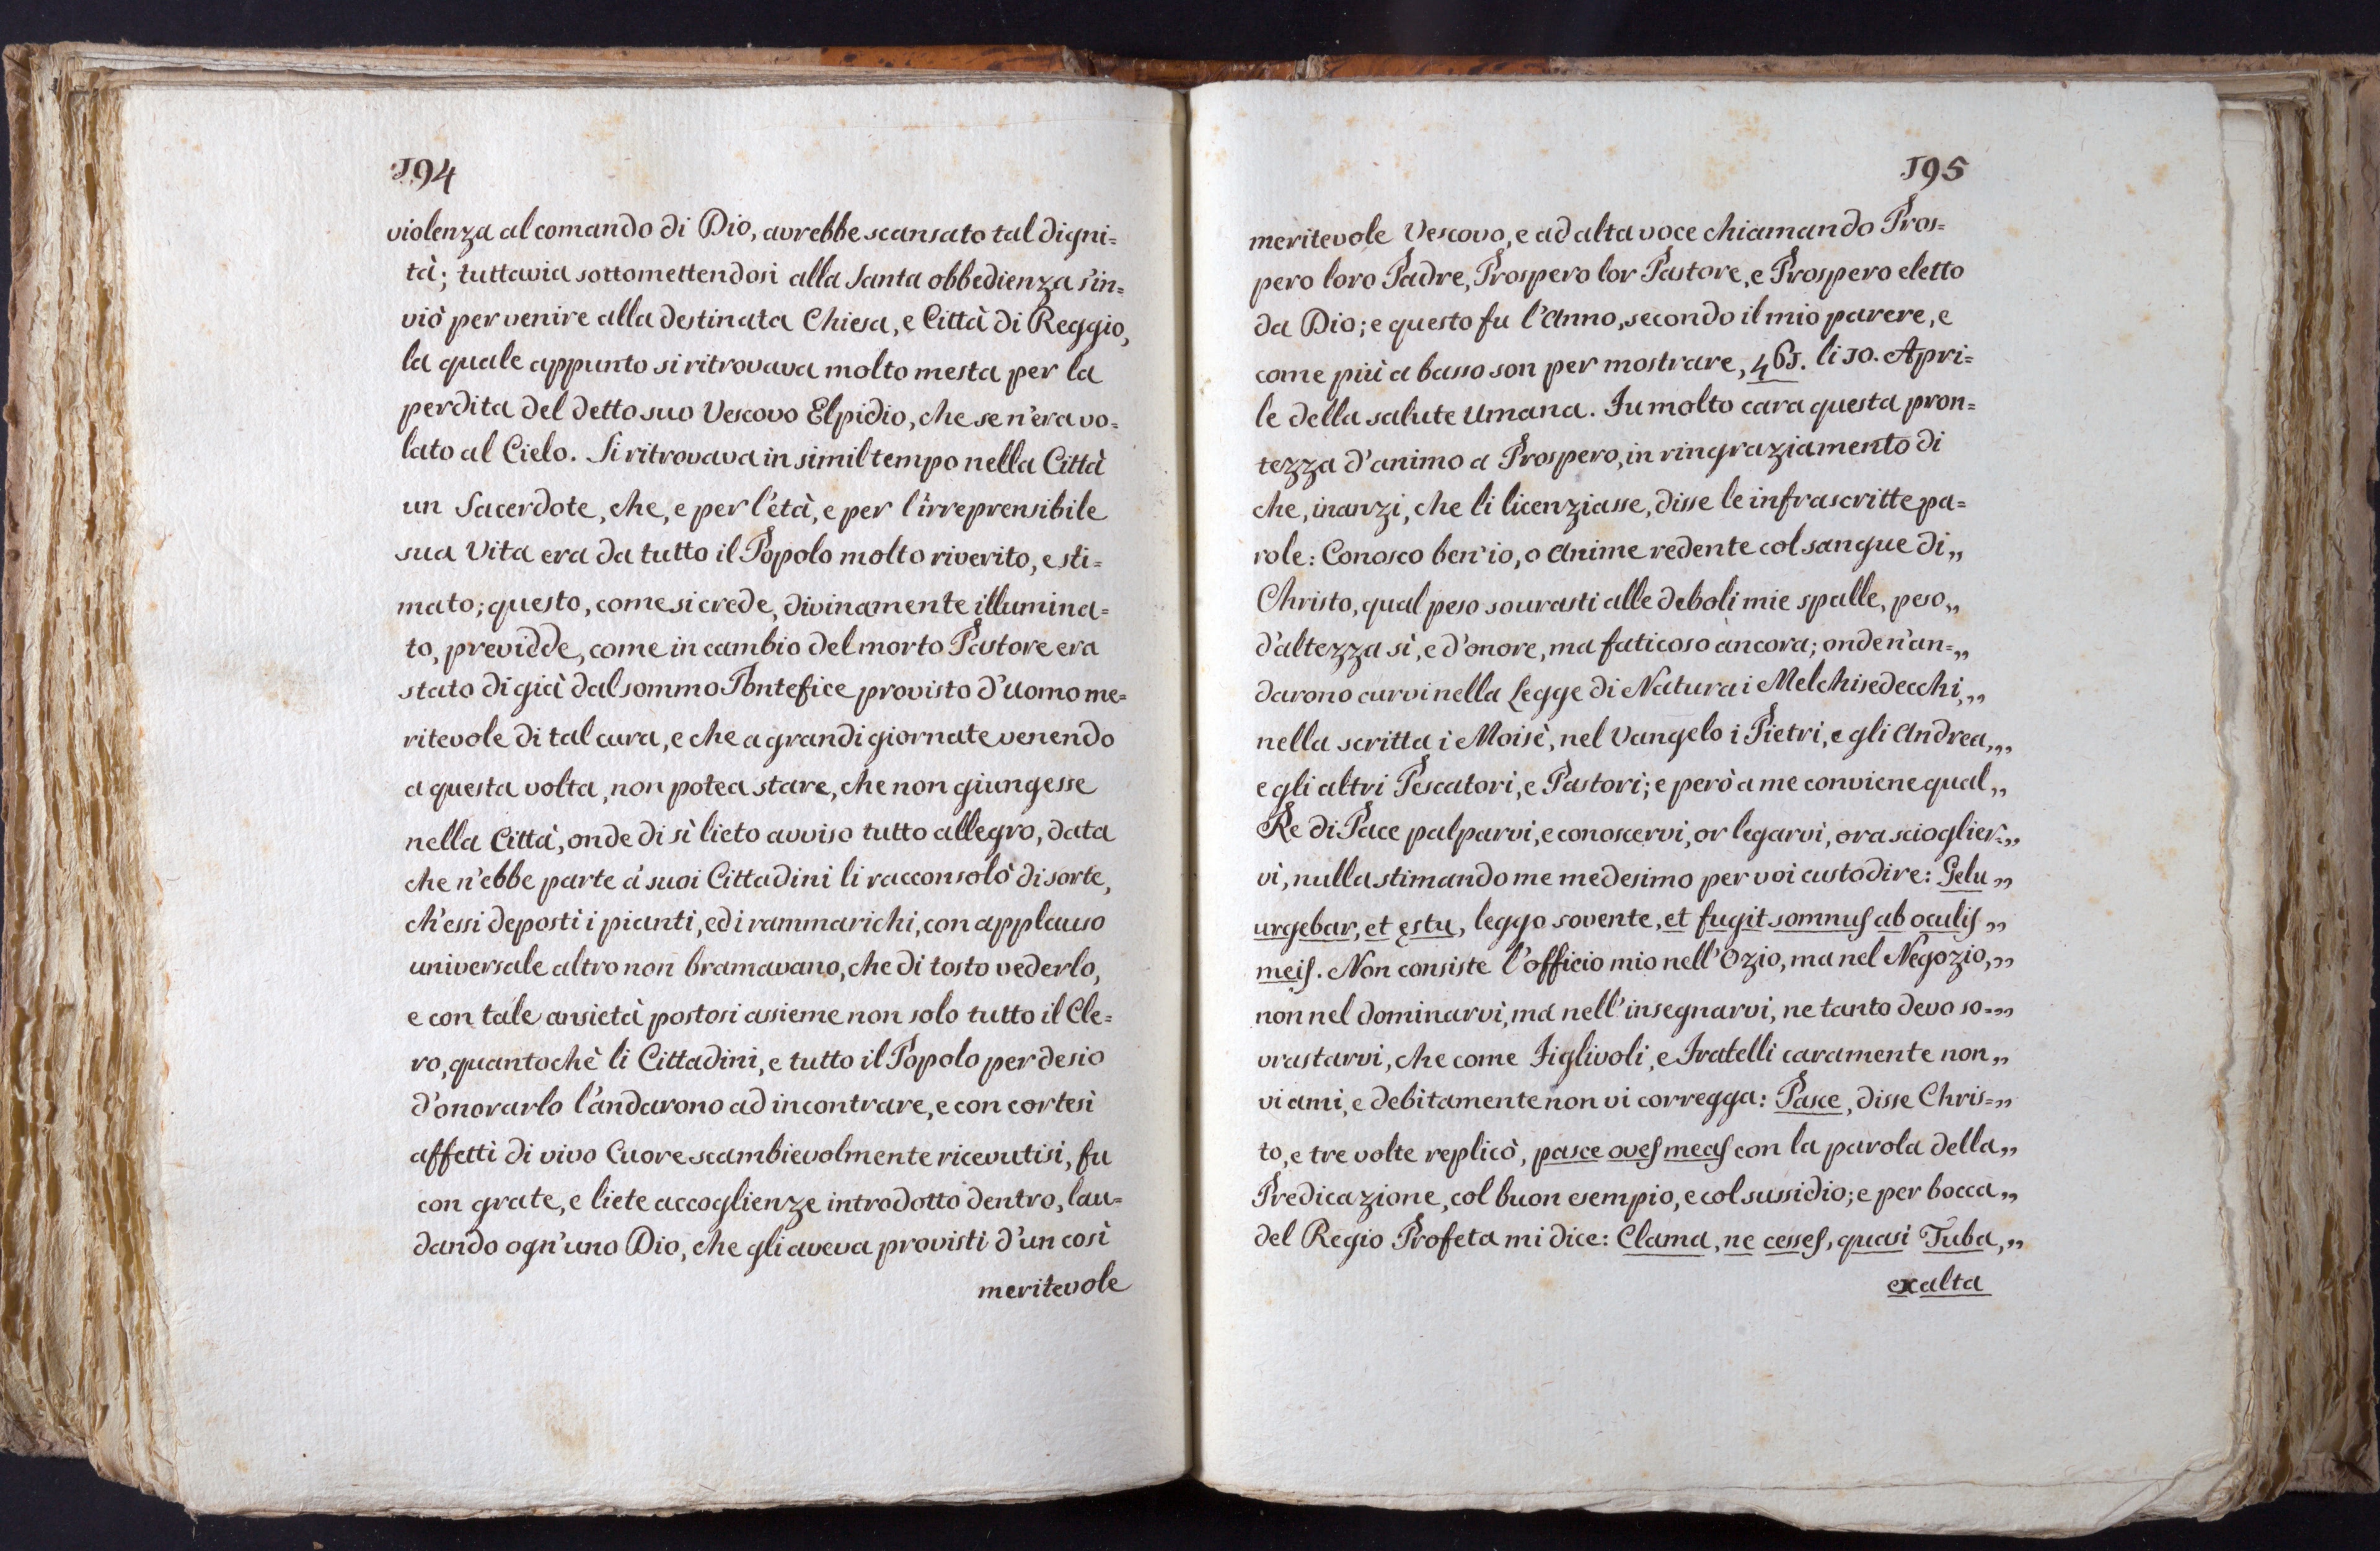 194
violenza al comando di Dio, avrebbe scansato tal digni=
tà; tuttavia sottomettendosi alla Santa obbedienza s'in=
viò per venire alla destinata Chiesa, e Città di Reggio,
la quale appunto si ritrovava molto mesta per la
perdita del detto suo Vescovo Elpidio, che se n'era vo=
lato al Cielo. Si ritrovava in simil tempo nella Città
un Sacerdote, che, e per l'età, e per l'irreprensibile
sua Vita era da tutto il Popolo molto riverito, e sti=
mato; questo, come si crede, divinamente illumina=
to, previdde, come in cambio del morto Pastore era
stato di già dal sommo Pontefice provisto d'uomo me=
ritevole di tal cura, e che a grandi giornate venendo
a questa volta, non potea stare, che non giungesse
nella Città, onde di sì lieto avviso tutto allegro, data
che n'ebbe parte a' suoi Cittadini li racconsolò di sorte,
ch'essi deposti i pianti, ed i rammarichi, con applauso
universale altro non bramavano, che di tosto vederlo,
e con tale ansietà postosi assieme non solo tutto il Cle=
ro, quantochè li Cittadini, e tutto il Popolo per desio
d'onorarlo l'andarono ad incontrare, e con cortesi
affetti di vivo Cuore scambievolmente ricevutisi, fu
con grate, e liete accoglienze introdotto dentro, lau=
dando ogn'uno Dio, che gli aveva provisti d'un così
meritevole
195
meritevole Vescovo, e ad alta voce chiamando Pros=
pero loro Padre, Prospero lor Pastore, e Prospero eletto
da Dio; e questo fu l'Anno, secondo il mio parere, e
come più a basso son per mostrare, 461. li 10. Apri=
le della salute Umana. Fu molto cara questa pron=
tezza d'animo a Prospero, in ringraziamento di
che, inanzi, che li licenziasse, disse le infrascritte pa=
role: Conosco ben'io, o Anime redente col sangue di „
Christo, qual peso sourasti alle deboli mie spalle, peso „
d'altezza sì, e d'onore, ma faticoso ancora; onde n'an= „
darono curvi nella Legge di Natura i Melchisedecchi, „
nella scritta i Moisè, nel Vangelo i Pietri, e gli Andrea, „
e gli altri Pescatori, e Pastori; e però a me conviene qual „
Re di Pace palparvi, e conoscervi, or legarvi, ora scioglier= „
vi, nulla stimando me medesimo per voi custodire: Gelu „
urgebar, et ęstu, leggo sovente, et fugit somnus ab oculis „
meis. Non consiste l'officio mio nell'Ozio, ma nel Negozio, „
non nel dominarvi, ma nell'insegnarvi, ne tanto devo so= „
vrastarvi, che come Figlivoli, e Fratelli caramente non „
vi ami, e debitamente non vi corregga: Pasce, disse Chris= „
to, e tre volte replicò, pasce oves meas con la parola della „
Predicazione, col buon esempio, e col sussidio; e per bocca „
del Regio Profeta mi dice: Clama, ne cesses, quasi Tuba, „
exalta